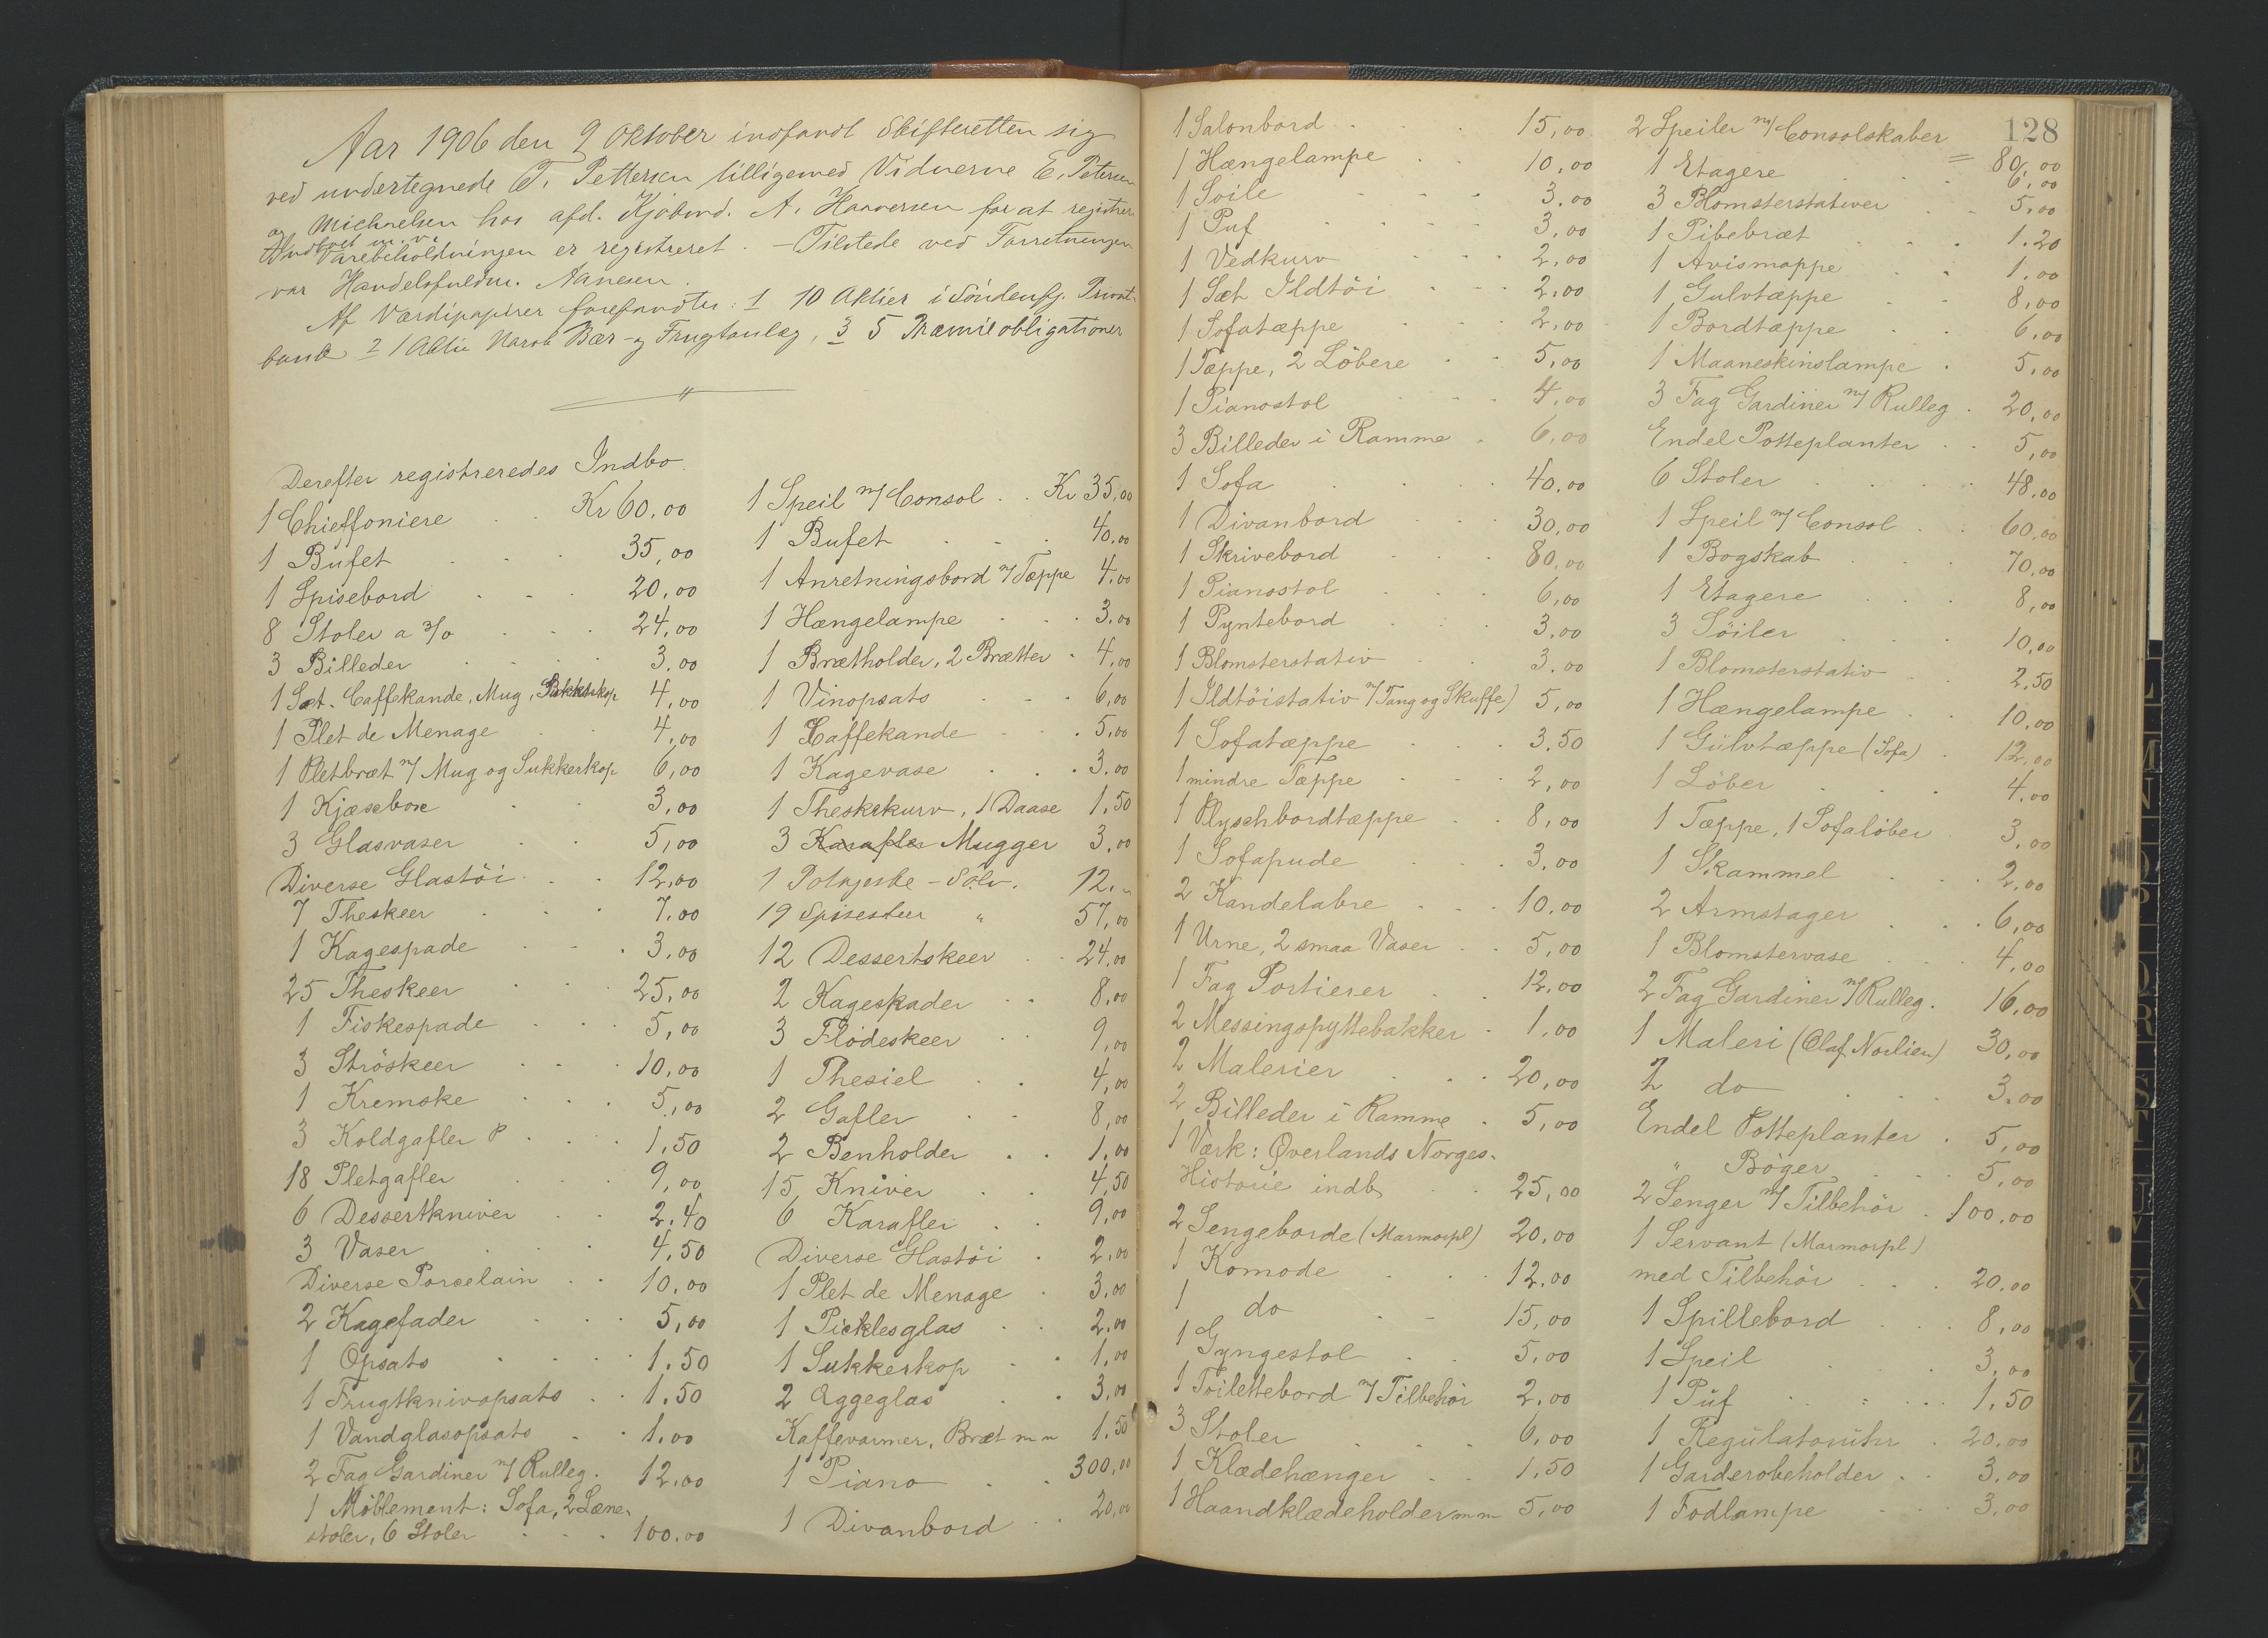 Aar 1906 den 9 Oktober indfandt Skifteretten sig
ved undertegnede T. Pettersen tilligemed Vidnerne E. Petersen
og Michaelsen hos afd. Kjøbmd. A. Haaversen for at registrere
Indboet m. v.
Varebeholdningen er registreret. – Tilstede ved Forretningen
var Handelsfuldm. Nanesen.
Af Værdipapirer forefandtes: 1 10 Aktier i Söndenfj. Privat-
bank 2 1 Aktie Norsk Bær- og Frugtanlæg, 3 5 Præmieobligationer
Derefter registreredes Indbo.
1 Chieffoniere Kr 60,00
1 Bufet 35,00
1 Spisebord 20,00
8 Stoler a 3/0 24,00
3 Billeder 3,00
1 Sæt. Caffekande, Mug, Sukkerkop 4,00
1 Plet de Menage 4,00
1 Pletbræt m/ Mug og Sukkerkop 6,00
1 Kjæxebox 3,00
3 Glasvaser 5,00
Diverse Glastöi 12,00
7 Theskeer 7,00
1 Kagespade 3,00
25 Theskeer 25,00
1 Fiskespade 5,00
3 Ströskeer 10,00
1 Kremske 5,00
3 Koldgafler P 1,50
18 Pletgafler 9,00
6 Dessertkniver 2,40
3 Vaser 4,50
Diverse Porcelain 10,00
2 Kagefader 5,00
1 Opsats 1,50
1 Frugtknivopsats 1,50
1 Vandglasopsats 1,00
2 Fag Gardiner m/ Rulleg. 12,00
1 Möblement: Sofa, 2 Læne-
stoler, 6 Stoler 100,00
1 Speil m/ Consol Kr 35,00
1 Bufet 40,00
1 Anretningsbord m/ Tæppe 4,00
1 Hængelampe 3,00
1 Brætholder, 2 Brætter 4,00
1 Vinopsats 6,00
1 Caffekande 5,00
1 Kagevase 3,00
1 Theskekurv, 1 Daase 1,50
3 Karafler Mugger 3,00
1 Potageske – Sölv. 12,„
19 Spiseskeer „ 57,00
12 Dessertskeer 24,00
2 Kagespader 8,00
3 Flödeskeer 9,00
1 Thesiel 4,00
2 Gafler 8,00
2 Benholder 1,00
15 Kniver 4,50
6 Karafler 9,00
Diverse Glastöi 2,00
1 Plet de Menage 3,00
1 Picklesglas 2,00
1 Sukkerkop 1,00
2 Æggeglas 3,00
Kaffevarmer, Bræt m m 1,50
1 Piano 300,00
1 Divanbord 20,00
1 Salonbord 15,00
1 Hængelampe 10,00
1 Soile 3,00
1 Puf 3,00
1 Vedkurv 2,00
1 Sæt Ildtöi 2,00
1 Sofatæppe 2,00
1 Tæppe, 2 Löbere 5,00
1 Pianostol 4,00
3 Billeder i Ramme 6,00
1 Sofa 40,00
1 Divanbord 30,00
1 Skrivebord 80,00
1 Pianostol 6,00
1 Pyntebord 3,00
1 Blomsterstativ 3,00
1 Ildtöistativ m/ Tang og Skuffe) 5,00
1 Sofatæppe 3,50
1 mindre Tæppe 2,00
1 Plyschbordtæppe 8,00
1 Sofapude 3,00
2 Kandelabre 10,00
1 Urne, 2 smaa Vaser 5,00
1 Fag Portierer 12,00
2 Messingspyttebakker 1,00
2 Malerier 20,00
2 Billeder i Ramme 5,00
1 Værk: Øverlands Norges-
Historie indb. 25,00
2 Sengeborde (Marmorpl) 20,00
1 Komode 12,00
1 do 15,00
1 Gyngestol 5,00
1 Toilettebord m/ Tilbehör 2,00
3 Stoler 6,00
1 Klædehænger 1,50
1 Haandklædeholder m m 5,00
128
2 Speiler m/ Consolskaber = 80,00
1 Etagere 6,00
3 Blomsterstativer 5,00
1 Pibebræt 1.20
1 Avismappe 1,00
1 Gulvtæppe 8,00
1 Bordtæppe 6,00
1 Maaneskinslampe 5,00
3 Fag Gardiner m/ Rulleg 20,00
Endel Potteplanter 5,00
6 Stoler 48,00
1 Speil m/ Consol 60,00
1 Bogskab 70,00
1 Etagere 8,00
3 Söiler 10,00
1 Blomsterstativ 2,50
1 Hængelampe 10,00
1 Gulvtæppe (Sofa) 12,00
1 Löber 4,00
1 Tæppe, 1 Sofalöber 3,00
1 Skammel 2,00
2 Armstager 6,00
1 Blomstervase 4,00
2 Fag Gardiner m/ Rulleg. 16,00
1 Maleri (Olaf Norlien) 30,00
2 do 3,00
Endel Potteplanter 5,00
„ Böger 5,00
2 Senger m/ Tilbehör 100,00
1 Servant (Marmorpl.)
med Tilbehör 20,00
1 Spillebord 8,00
1 Speil 3,00
1 Puf 1,50
1 Regulatoruhr 20,00
1 Garderobeholder 3,00
1 Fodlampe 3,00